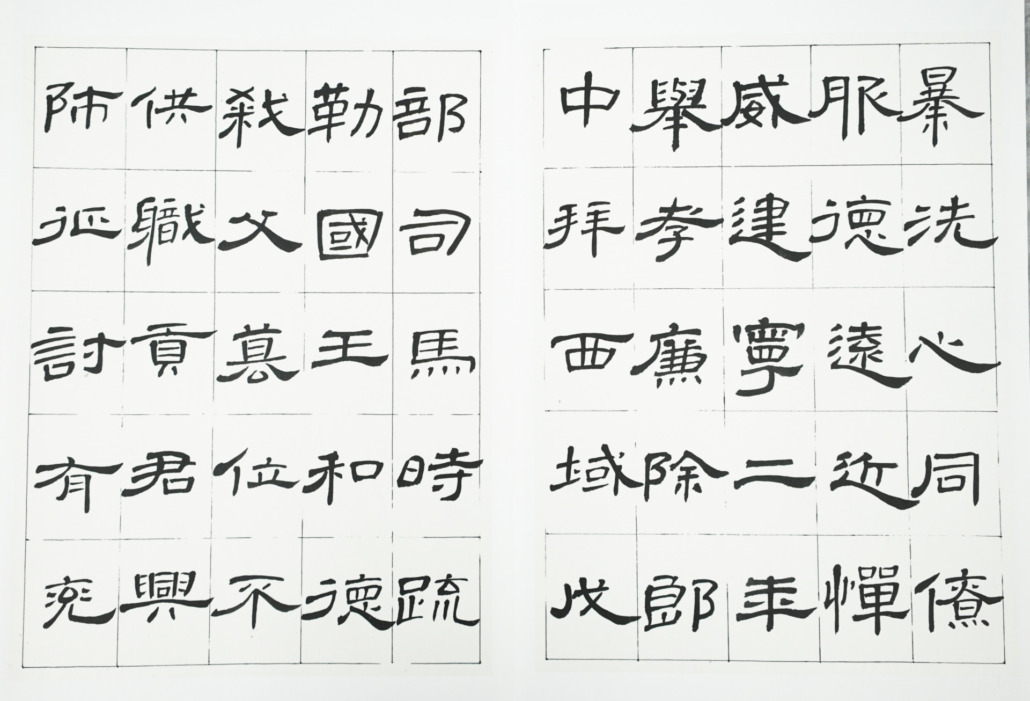 暴洗心同僚
服德遠近憚
威建寧二年
舉孝廉除郎
中拜西域戊
部司馬時疏
勒國王和德
弒父篡位不
供職貢君興
師征討有兗